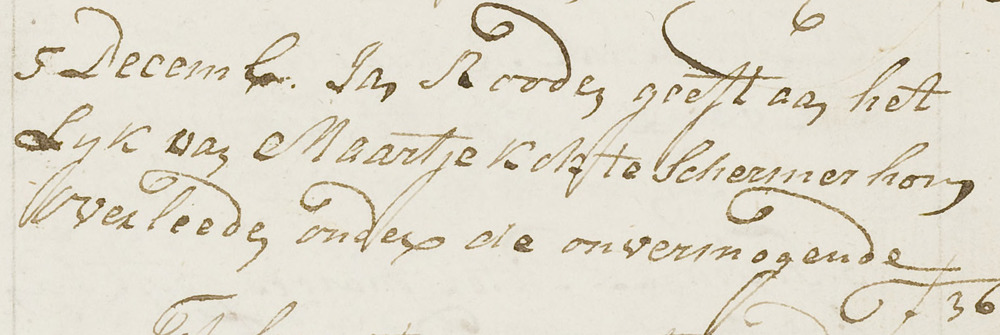 5 Decemb. Jan Rooden geeft aan het
Lyk van Maartje Kok te Schermerhorn
Overleeden onder de onvermogende
f 36